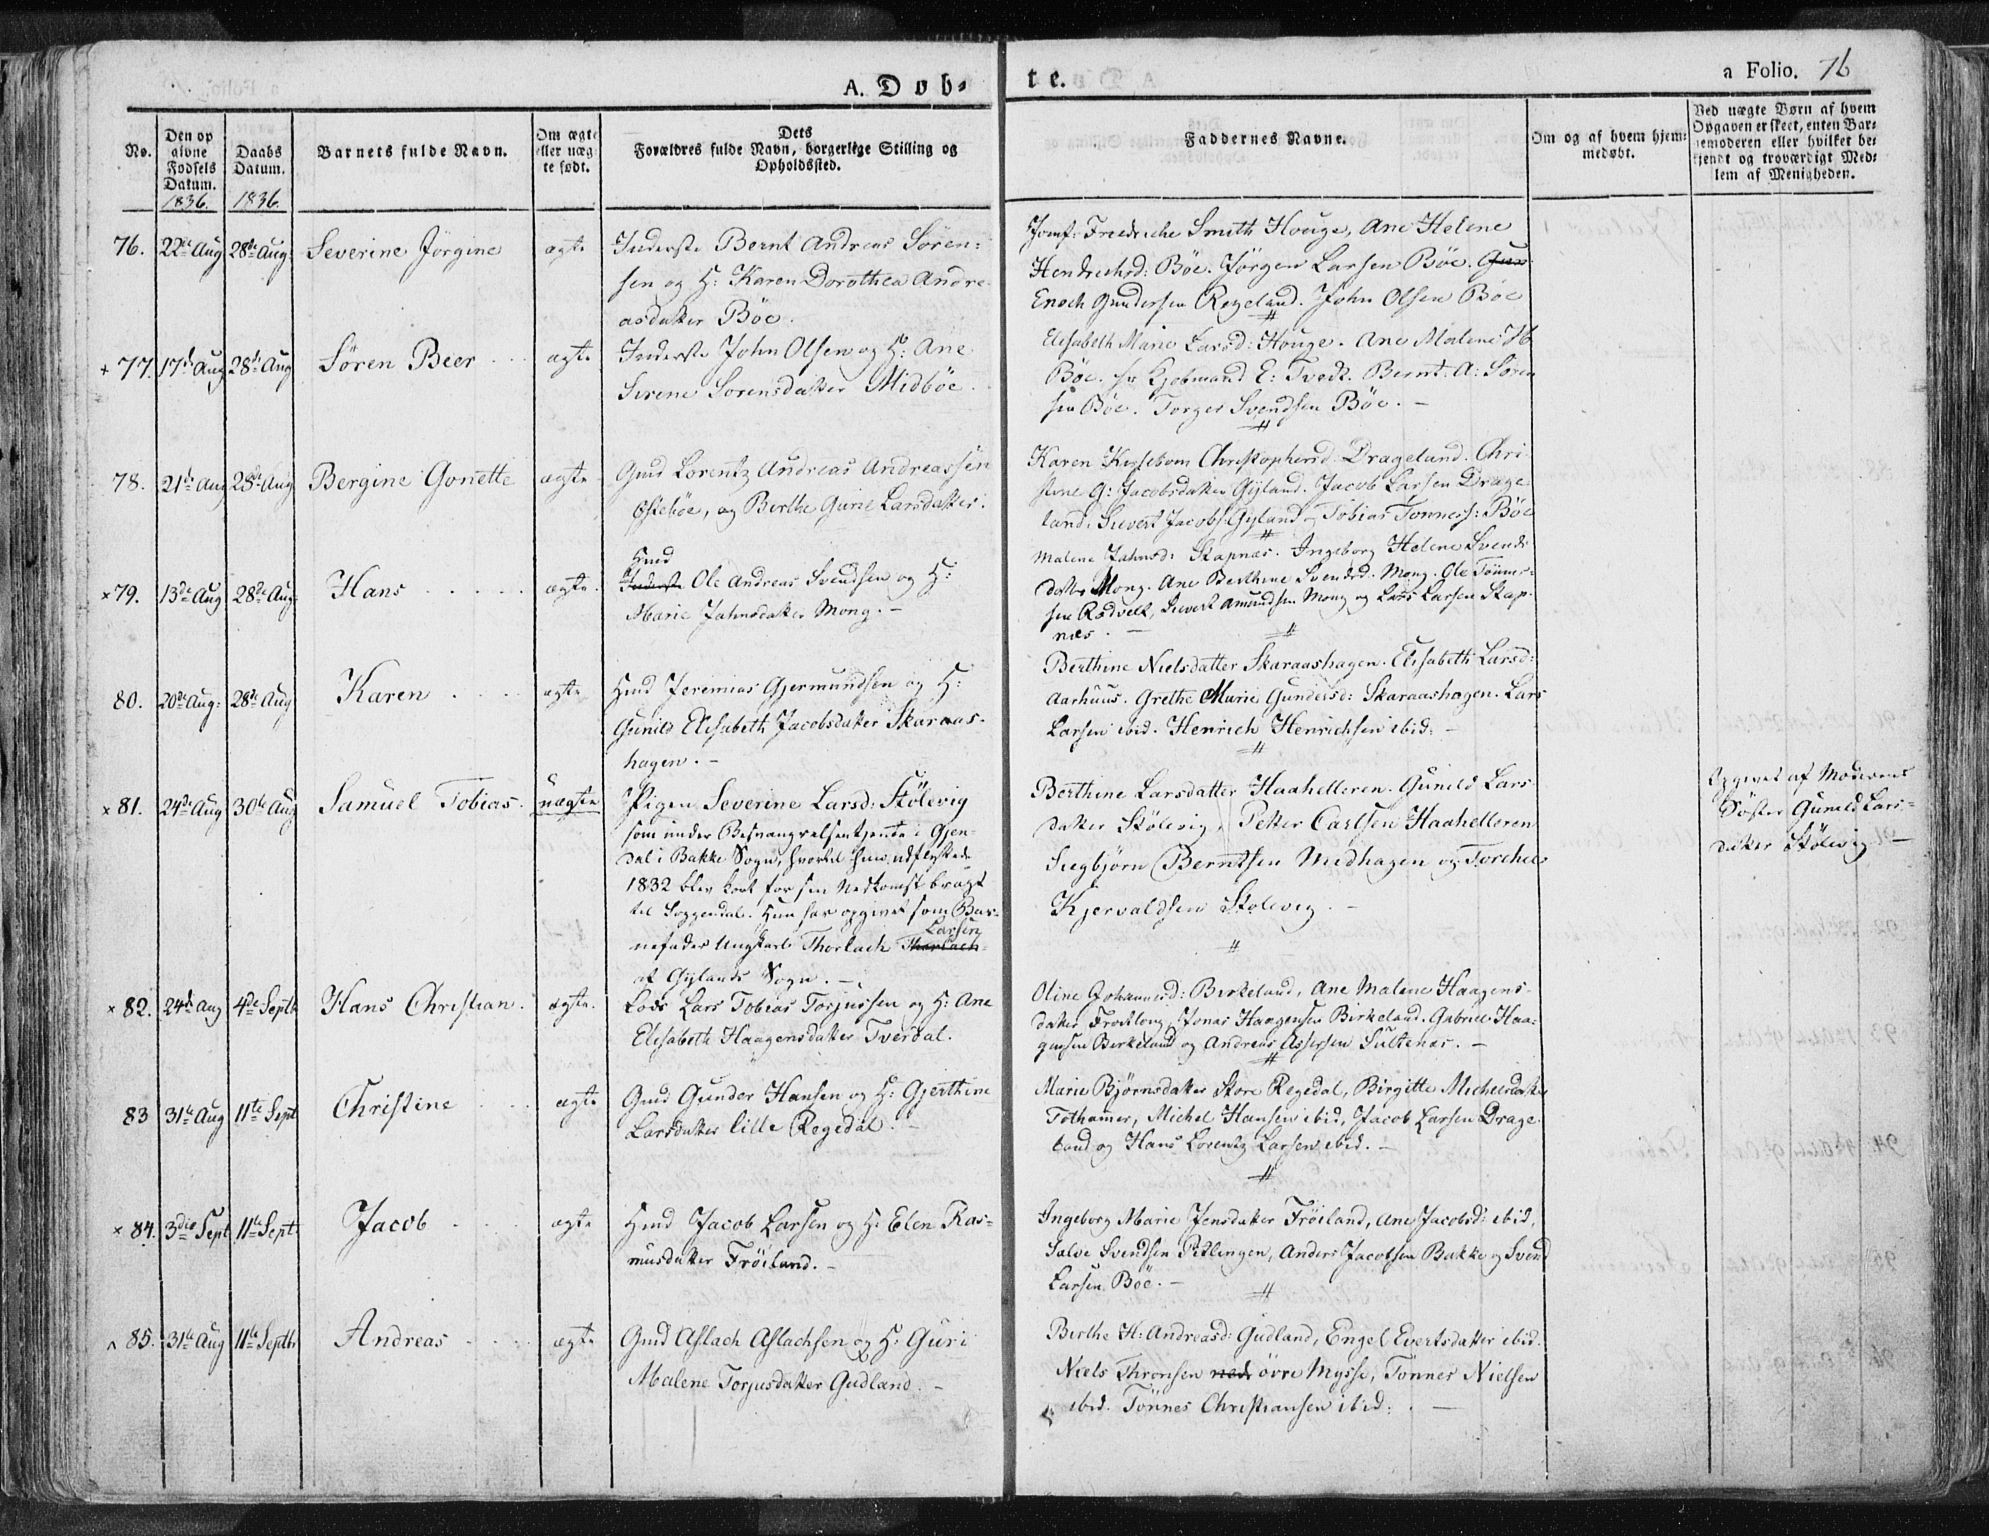 A. Dob-
te.
a Folio. 76
No.
Den op
givne
Fødsels
Datum.
1836.
Daabs
Datum.
1836.
Barnets fulde Navn.
Om ægte
eller uæg
te født.
Dets
Forældres fulde Navn, borgerlige Stilling og
Opholdssted.
Faddernes Navne.
Om og af hvem hjem-
medøbt.
Ved uægte Børn af hvem
Opgaven er skeet, enten Bar-
nemoderen eller hvilket be-
kjendt og troværdigt Med-
lem af Menigheden.
76. 22de Aug 28de Aug. Severine Jörgine ægte
Inderste Bernt Andreas Sören-
sen og H: Karen Dorothea Andre
asdatter Böe.
Jomf: Friedriche Smith Houge, Ane Helene
Hendrichsd: Böe. Jörgen Larsen Böe.
Enoch Gundersen Regeland. John Olsen Böe
+ 77. 17de Aug 28de Aug Sören Beer ægte
Inderste John Olsen og H: Ane
Serene Sorensdatter Midböe.
Elisabeth Marie Larsd: Houge. Ane Malene
Böe. Hr Kjöbmand E: Tvedt. Bernt: A: Sören
sen Böe. Torger Svendsen Böe. -
78. 21de Aug 28de Aug Bergine Gonette ægte
Gmd Lorentz Andreas Andreassen
Østeböe, og Berthe Gurie Larsdatter.
Karen Christophersd. Drageland. Chri
stine G: Jacobsdatter Gyland. Jacob Larsen Drage
land, Sievert Jacobs: Gyland og Tobias Tönness: Böe
x 79. 13de Aug 28de Aug. Hans ægte.
Hmd
Inderste Ole Andreas Svendsen og H:
Marie Jahnsdatter Mong. -
Malene Jahnsd: Stapnæs. Ingeborg Helene Svends
datter Mong. Ane Berthine Svendsd. Mong. Ole Tönnes-
sen Rödvelt, Sievert Amundsen Mong og Lars Larsen Stap-
næs. -
80. 20de Aug: 28de Aug Karen ægte
Hmd Jeremias Gjermundsen og H:
Gunild Elisabeth Jacobsdatter Skaraas-
hagen. -
Berthine Nielsdatter Skaraashagen. Elisabeth Larsd:
Aarhuus. Grethe Marie Gundersd: Skaraashagen. Lars
Larsen ibid. Henrich Henrichsen ibid: -
x 81. 24de Aug 30te Aug Samuel Tobias. uægte
Pigen Severine Larsd: Stölevig
som under Besvangrelsen tjente i Gjen-
dal i Bakke Sogn, hvortil hun udflyttede
1832 blev kort før sin Nedkomst bragt
til Soggendal. Hun har opgivet som Bar-
nefader Ungkarl Thorlach Thorlach
Larsen
af Gylands Sogn. -
Berthine Larsdatter Haahelleren. Gunild Lars
datter Stölevig, Petter Carlsen Haahelleren
Siegbjörn Berntsen Midhagen og Torchel
Kjervaldsen Stölevig. -
Opgivet af Moderens
Söster Gunild Lars-
datter Stölevig -
x 82. 24de Aug 4de Septb Hans Christian. ægte.
Lods Lars Tobias Torjussen og H: Ane
Elisabeth Haagensdatter Tverdal.
Oline Johannesd: Birkeland, Ane Malene Haagens-
datter, Jonas Haagensen Birkeland. Gabriel Haa-
gensen Birkeland og Andreas Assersen Sultenæs. -
83 31te Aug 11te Sept Christine ægte
Gmd Gunder Hansen og H: Gjerthine
Larsdatter lille Regedal. -
Marie Björnsdatter Store Regedal, Birgitte Michelsdatter
Tothamer, Michel Hansen ibid, Jacob Larsen Drage-
land og Hans Lorentz Larsen ibid. -
x 84. 3die Sept 11te Sept: Jacob ægte
Hmd Jacob Larsen og H: Elen Ras-
musdatter Fröiland. -
Ingeborg Marie Jensdatter Fröiland, Ane Jacobsd: ibid,
Salve Svendsen Pitlingen, Anders Jacobsen Bakke og Svend
Larsen Böe. -
85. 31te Aug 11te Septbr Andreas ægte
Gmd Aslach Aslachsen og H: Guri
Malene Torjusdatter Gudland. -
Berthe H: Andreasd: Gudland, Engel Evertsdatter ibid.
Niels Thronsen ned övre Mysse, Tönner Nielsen
ibid. Tönnes Christiansen ibid: -